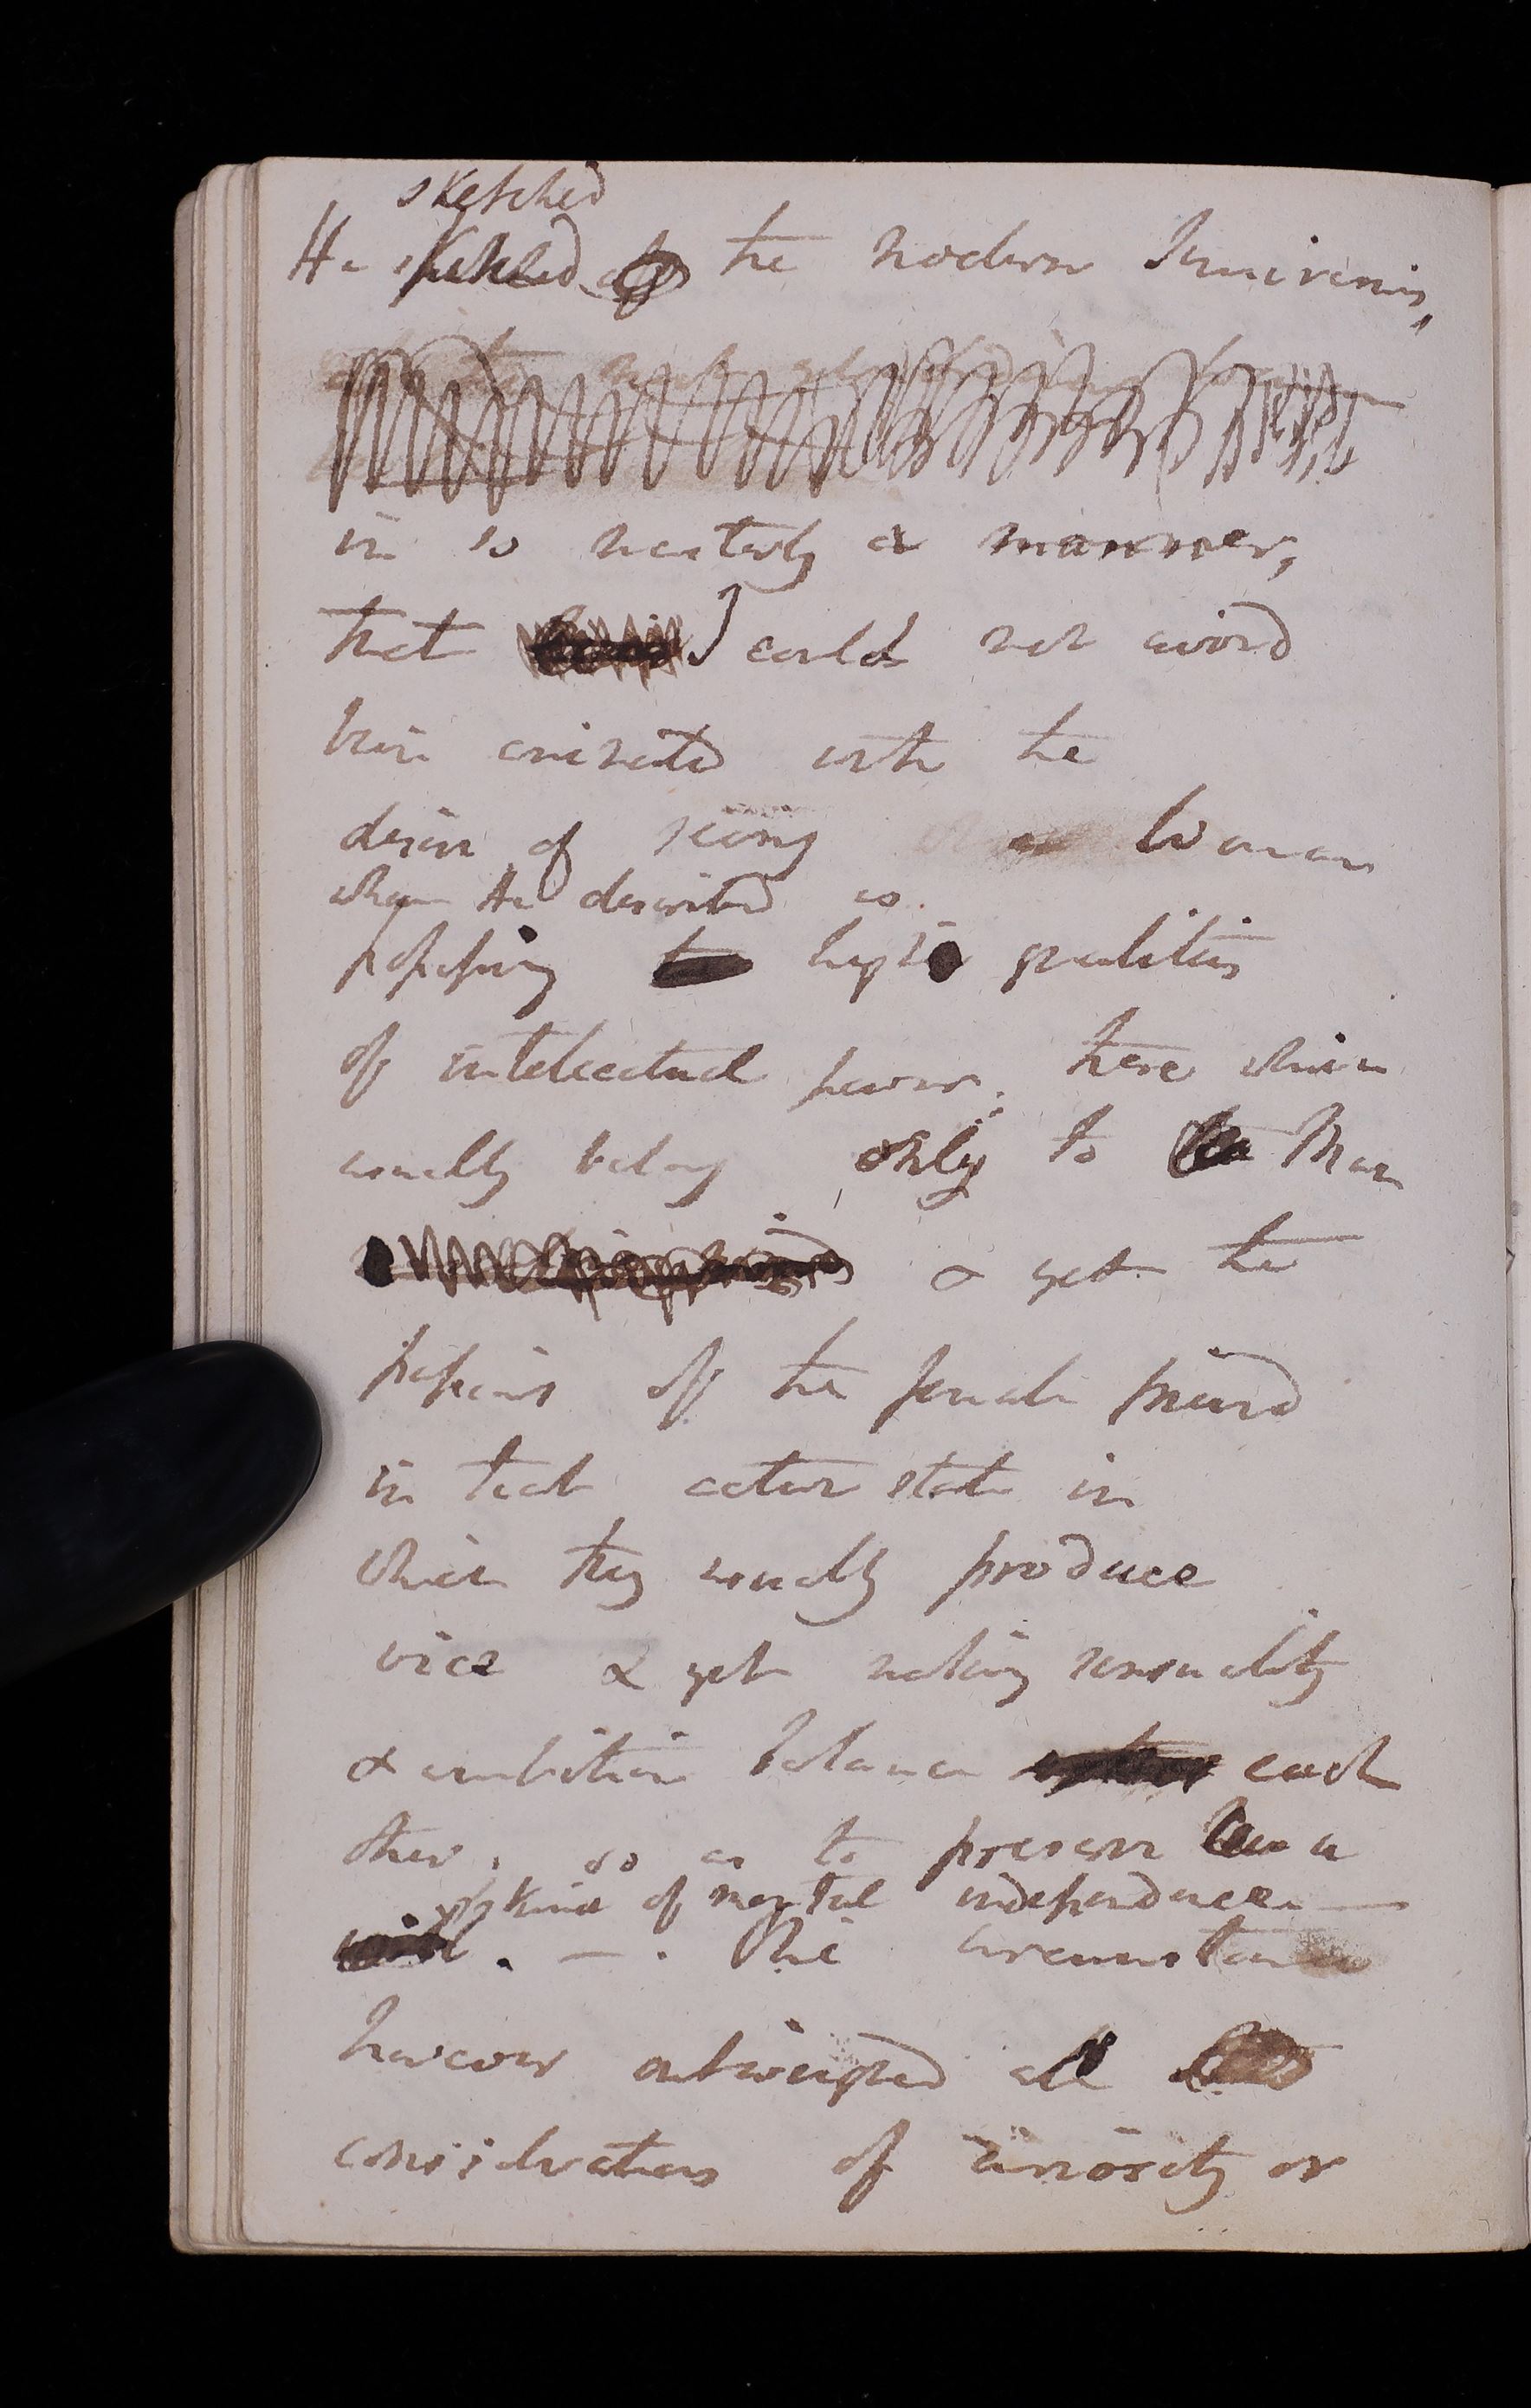 sketched
He sketched the modern Semiramis,
in so masterly a manner,
that I could not avoid
being animated with the
desire of seeing a Woman
whom He described as
possessing those qualities
of intellectual power; there which
usually belong only to Man
& yet the
passions of the female mind
in that active state in
which they usually produce
vice & yet making sensuality
& ambition balance each
other, so as to preserve a
kind of mental independence —
. — . This circumstance
however outweighed all
considerations of curiosity or